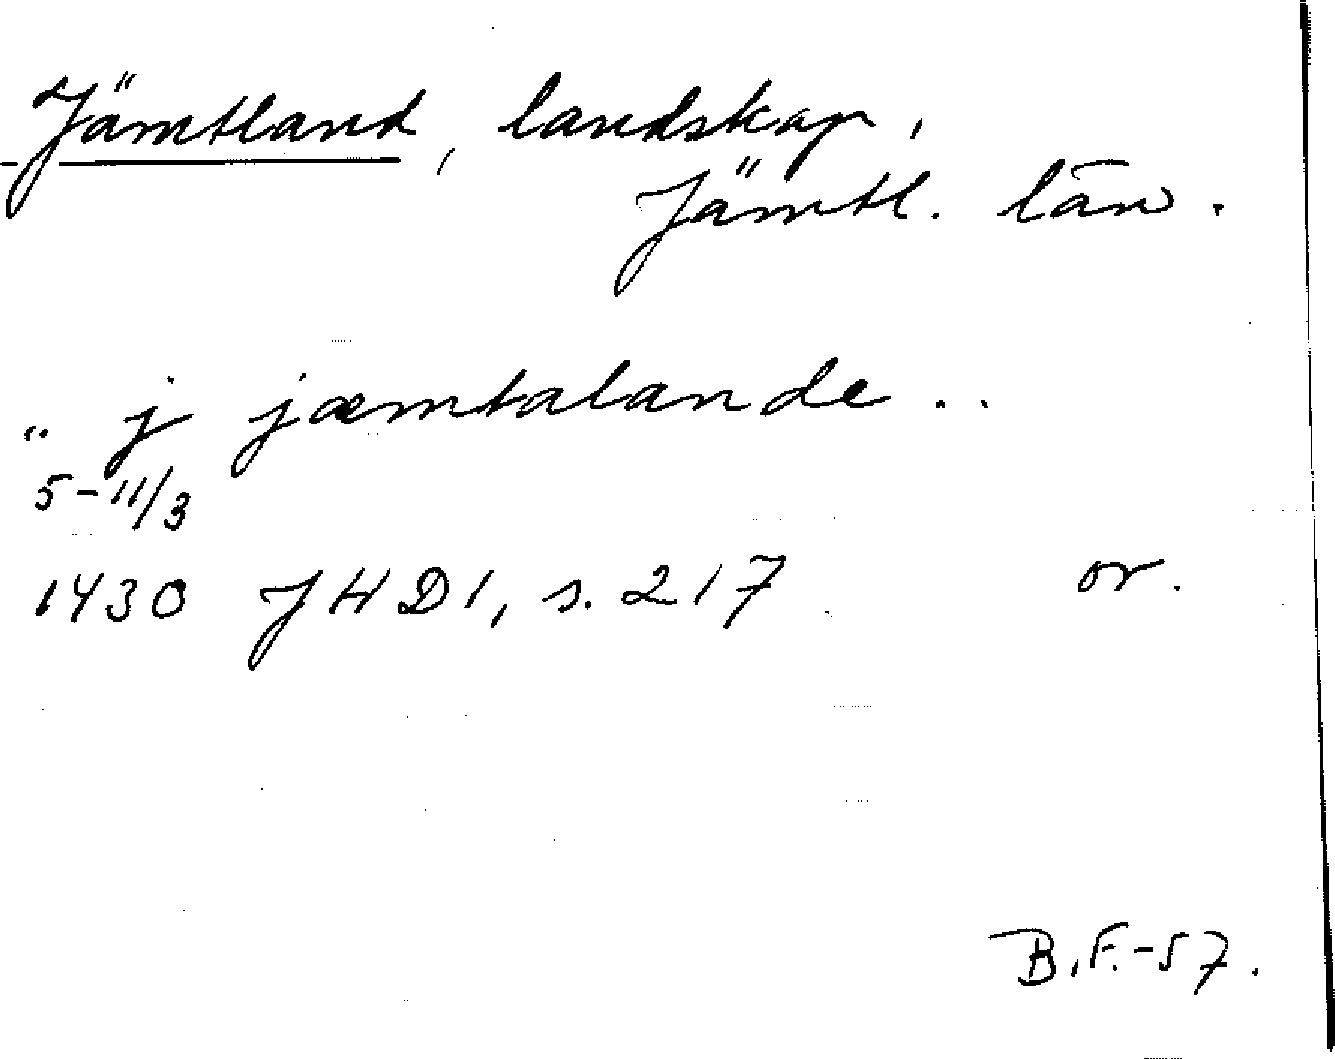 Jämtland, landskap,
Jämtl. län.
.. j jæmtalande ..
5-11/3
1430 JHD1, s. 217 or.
B.F.-57.